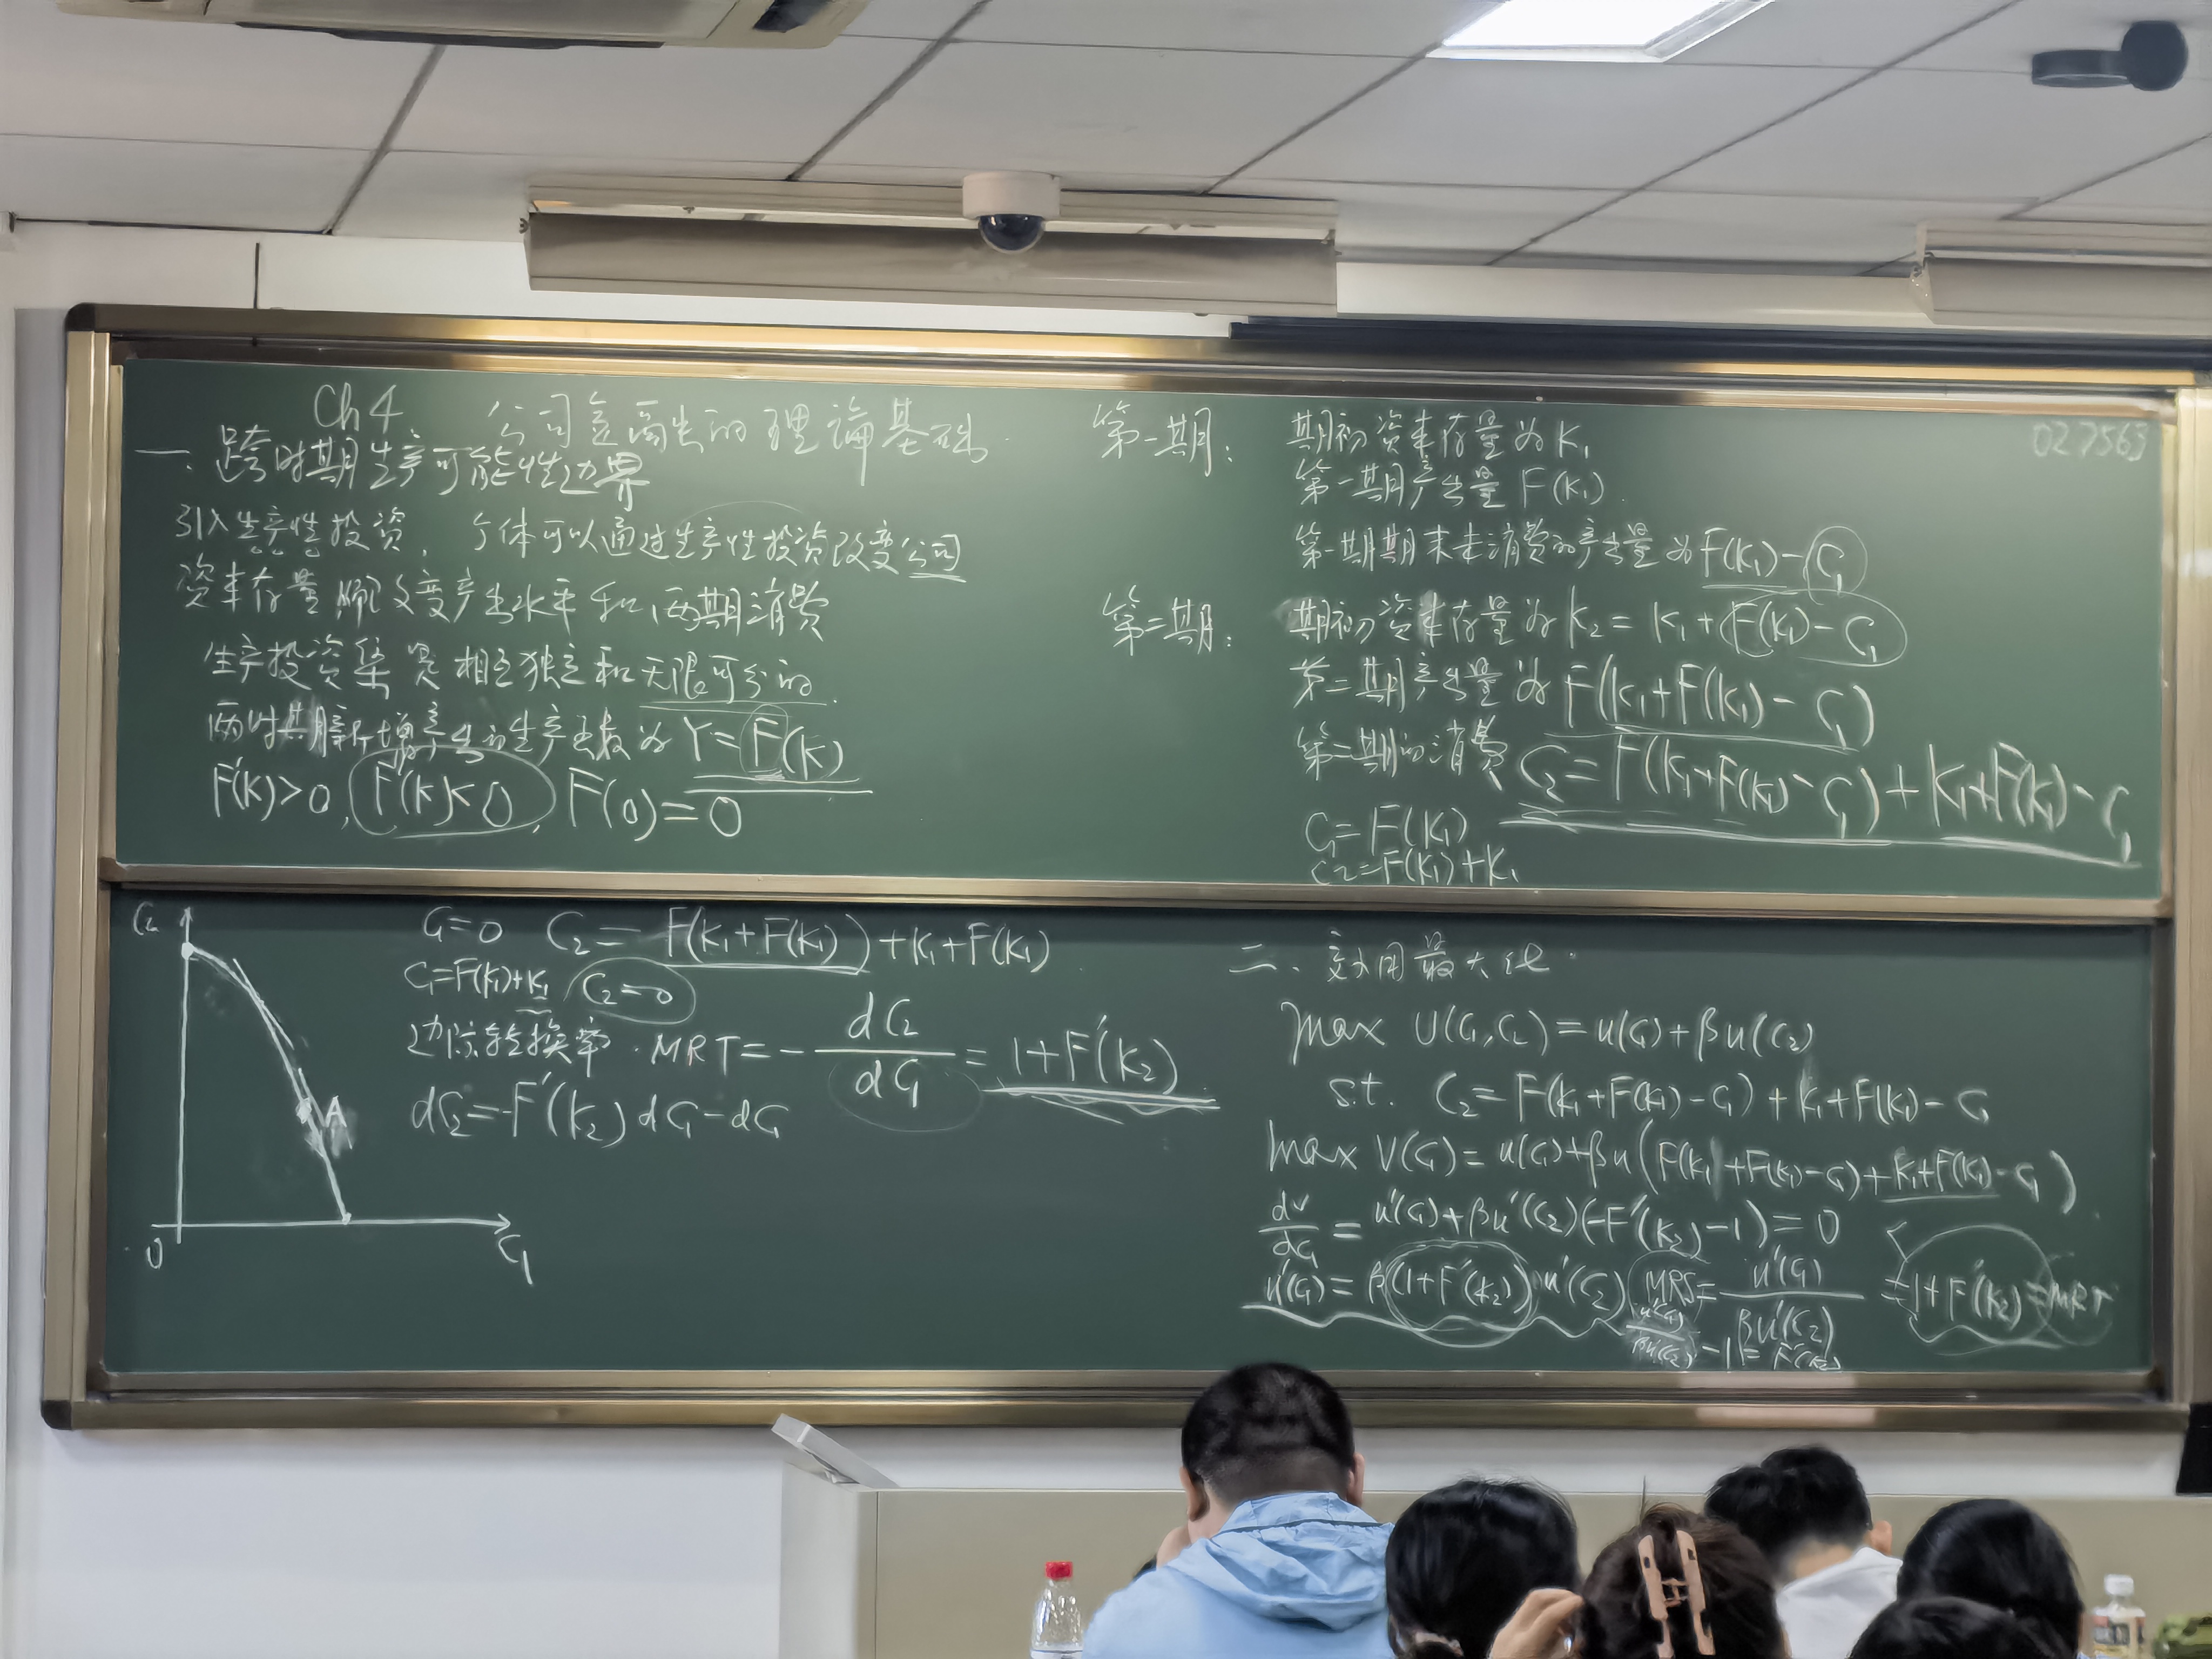 Ch 4. 公司金融的理论基础
一、跨时期生产可能性边界
引入生产性投资，个体可以通过生产性投资改变公司
资本存量 改变产出水平和两期消费
生产投资集 相互独立和无限可分的
Y=F(K)
F'(K)>0, F''(K)<0, F(0)=0
第一期：期初资本存量为K₁
第一期产出量F(K₁)
第一期期末未消费的产出量为F(K₁)-C₁
第二期：期初资本存量为K₂=K₁+F(K₁)-C₁
第二期产出量为F(K₁+F(K₁)-C₁)
第二期的消费 C₂=F(K₁+F(K₁)-C₁)+K₁+F(K₁)-C₁
C₁=F(K₁)
C₂=F(K₁)+K₁
027563
C₂
A
0
C₁
C₁=0 C₂=F(K₁+F(K₁))+K₁+F(K₁)
C₁=F(K₁)+K₁ C₂=0
边际转换率. MRT=-dC₂/dC₁=1+F'(K₂)
dC₂=-F'(K₂)dC₁-dC₁
二、效用最大化
max U(C₁,C₂)=u(C₁)+βu(C₂)
s.t. C₂=F(K₁+F(K₁)-C₁)+K₁+F(K₁)-C₁
max V(C₁)=u(C₁)+βu(F(K₁+F(K₁)-C₁)+K₁+F(K₁)-C₁)
dV/dC₁=u'(C₁)+βu'(C₂)(-F'(K₂)-1)=0
u'(C₁)=β(1+F'(K₂))u'(C₂) MRS=u'(C₁)/βu'(C₂)=1+F'(K₂)=MRT
u'(C₁)/βu'(C₂)-1=F'(K₂)